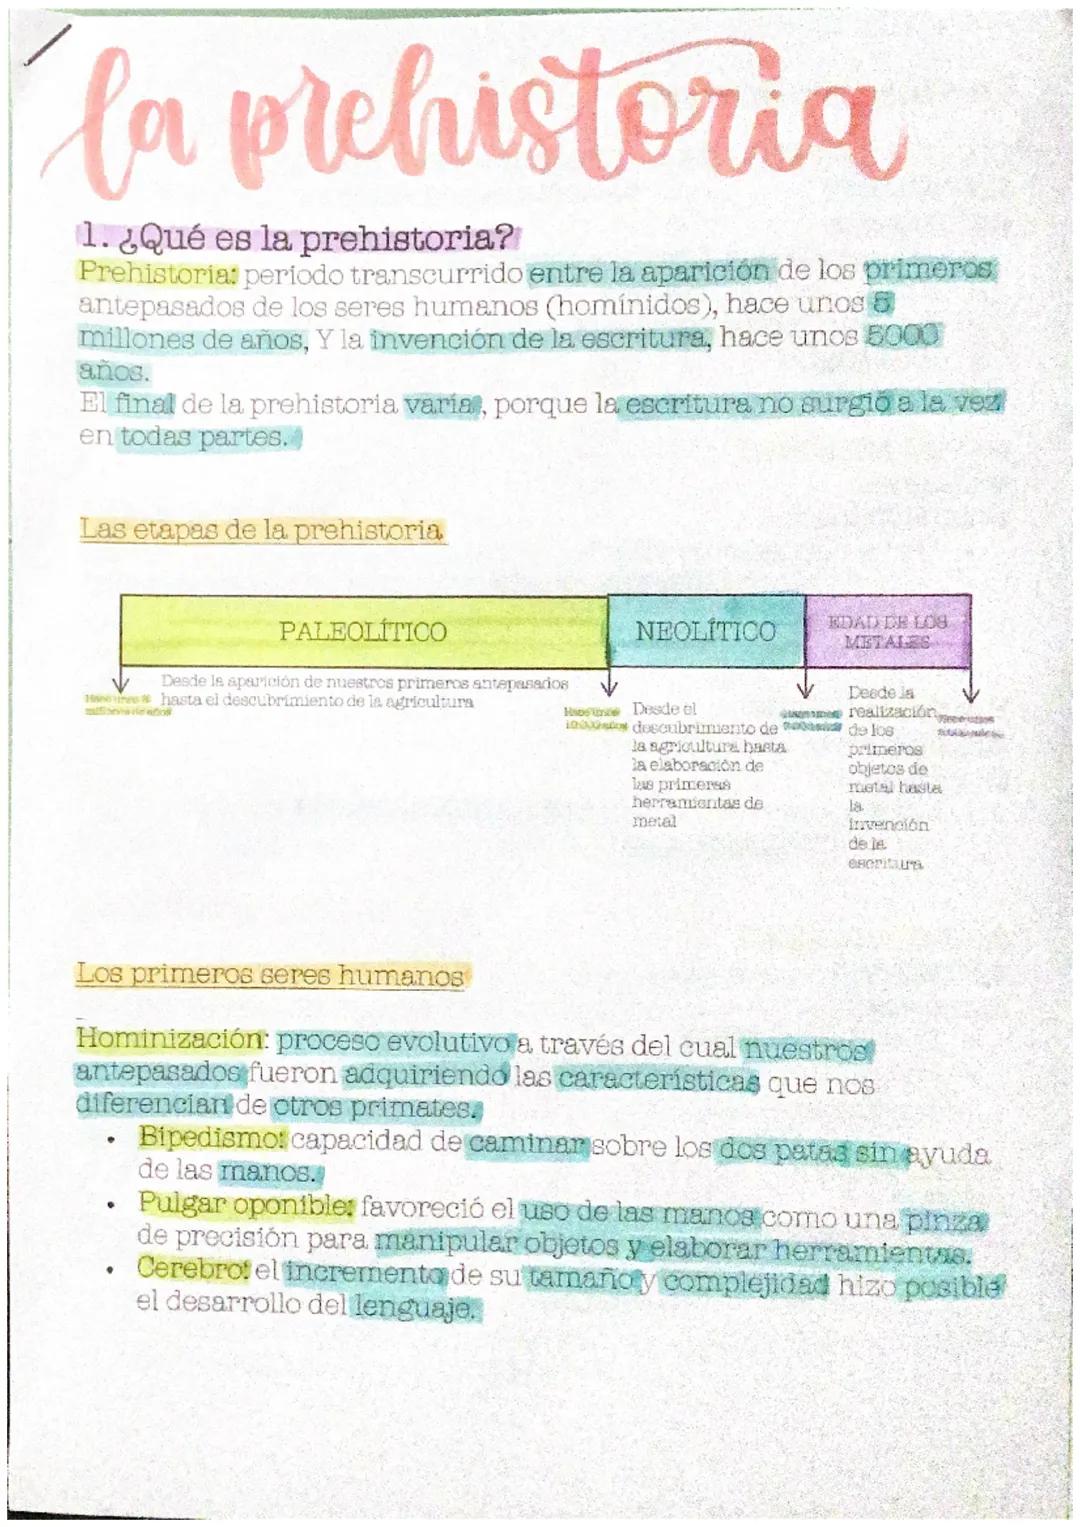 la prehistoria
1. ¿Qué es la prehistoria?
Prehistoria: periodo transcurrido entre la aparición de los primeros
antepasados de los seres humanos (homínidos), hace unos 5
millones de años, Y la invención de la escritura, hace unos 5000
años.
El final de la prehistoria varía, porque la escritura no surgió a la vez
en todas partes.
Las etapas de la prehistoria
PALEOLÍTICO
NEOLÍTICO
EDAD DE LOS
METALES
Desde la aparición de nuestros primeros antepasados
hasta el descubrimiento de la agricultura
millones de años
Hace unos
10.000 años
Desde el
descubrimiento de
la agricultura hasta
la elaboración de
las primeras
herramientas de
metal
Desde la
realización
de los
primeros
objetos de
metal hasta
la
invención
de la
escritura
Los primeros seres humanos
Hominización: proceso evolutivo a través del cual nuestros
antepasados fueron adquiriendo las características que nos
diferencian de otros primates.
• Bipedismo: capacidad de caminar sobre los dos patas sin ayuda
de las manos.
• Pulgar oponible: favoreció el uso de las manos como una pinza
de precisión para manipular objetos y elaborar herramientas.
• Cerebro: el incremento de su tamaño y complejidad hizo posible
el desarrollo del lenguaje.